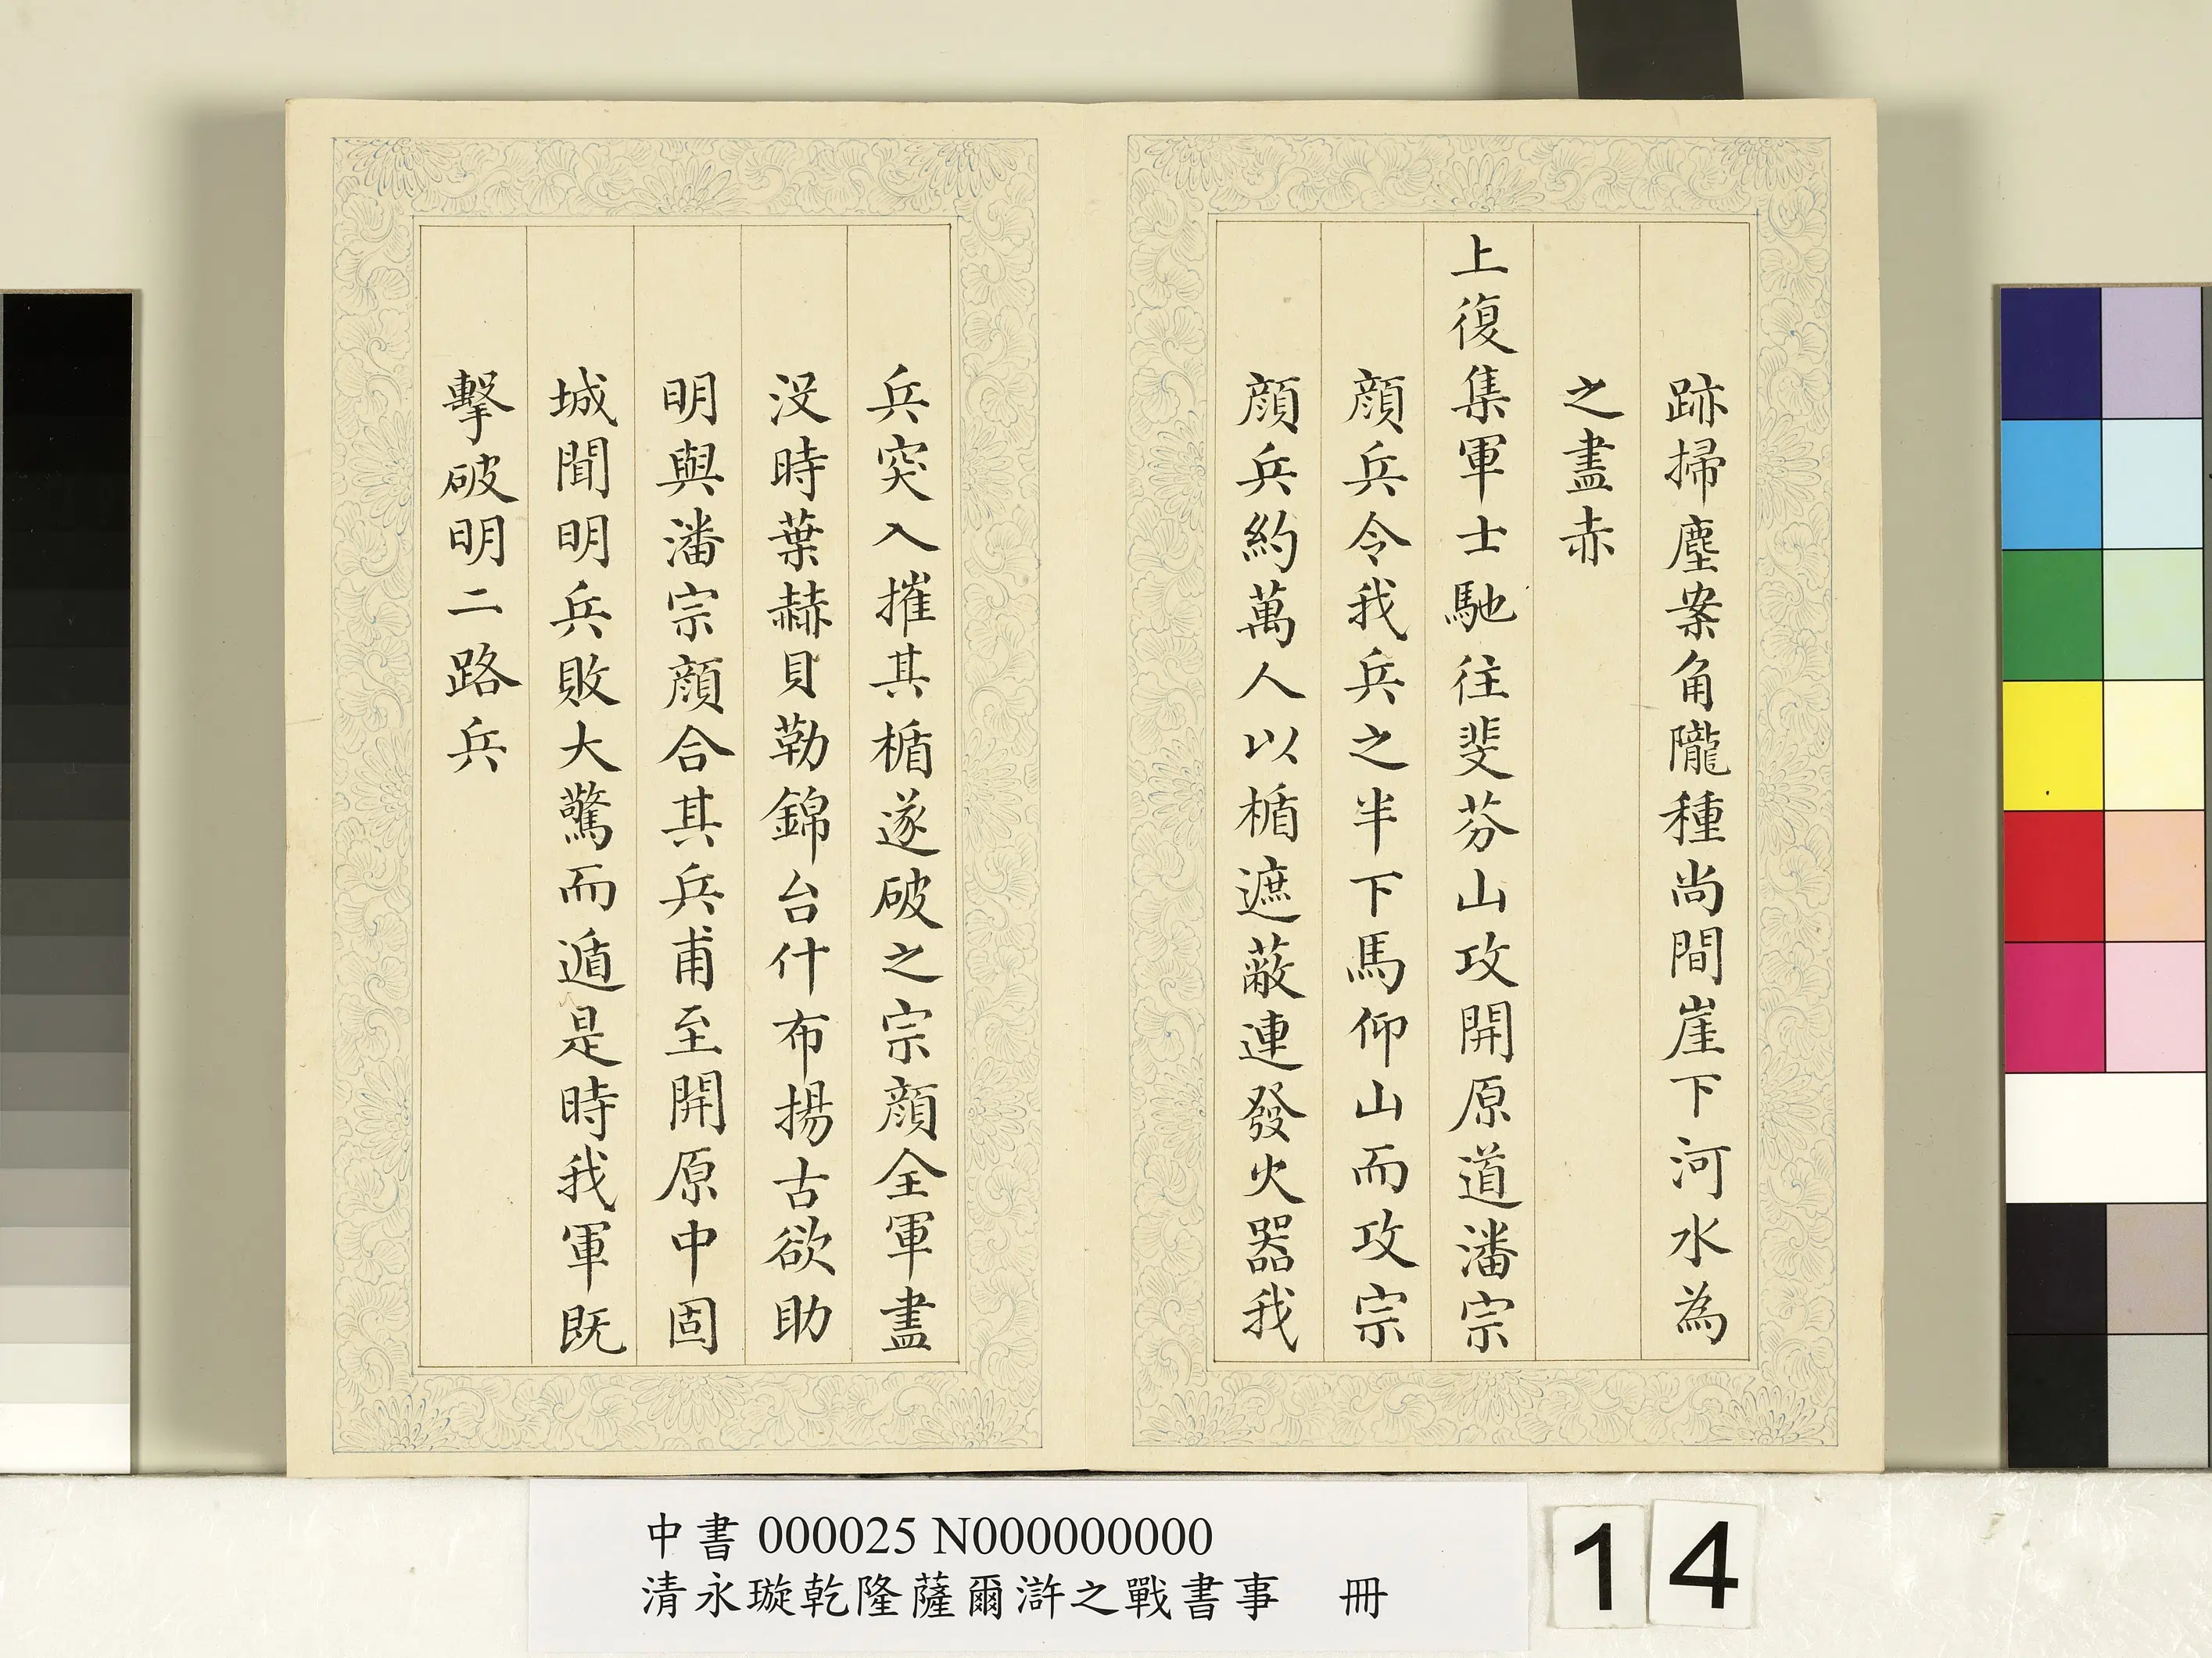 跡掃塵案角隴種尚間崖下河水為
之盡赤
上復集軍士馳往斐芬山攻開原道潘宗
顔兵令我兵之半下馬仰山而攻宗
顔兵約萬人以楯遮蔽連發火器我
兵突入摧其楯遂破之宗顔全軍盡
没時葉赫貝勒錦台什布揚古欲助
明與潘宗顔合其兵甫至開原中固
城聞明兵敗大驚而遁是時我軍既
擊破明二路兵
中書 000025 N000000000
清永璇乾隆薩爾滸之戰書事 冊
14